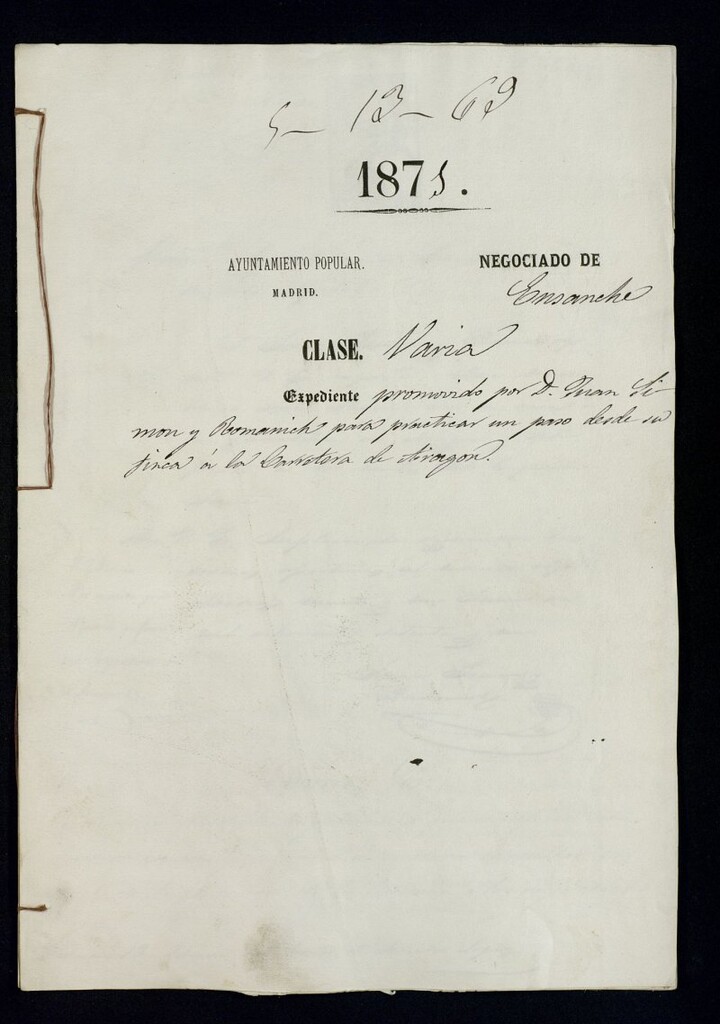 5 – 13 – 69
1871.
AYUNTAMIENTO POPULAR.
MADRID.
NEGOCIADO DE
Ensanche
CLASE. Varia
Expediente promovido por D. Juan Si-
mon y Romanich para practicar un paso desde su
finca á la Carretera de Aragon.